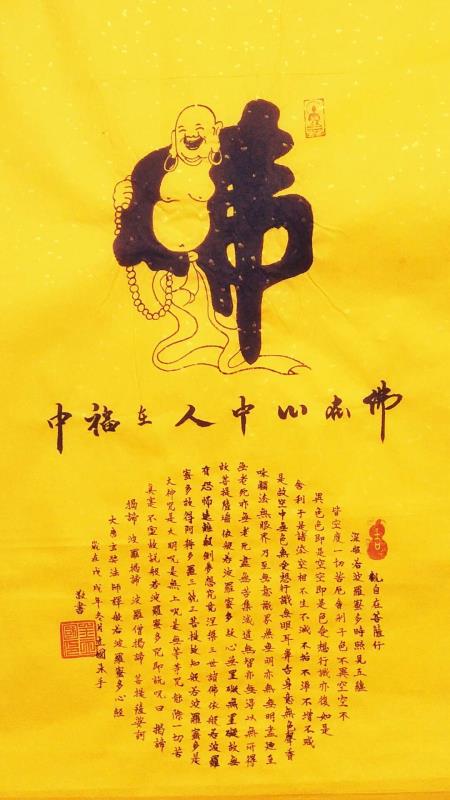 佛
佛在心中人在福中
觀自在菩薩行
深般若波羅蜜多時照見五蘊
皆空度一切苦厄舍利子色不異空空不
異色色即是空空即是色受想行識亦復如是
舍利子是諸法空相不生不滅不垢不淨不增不減
是故空中無色無受想行識無眼耳鼻舌身意無色聲香
味觸法無眼界乃至無意識界無無明亦無無明盡乃至
無老死亦無老死盡無苦集滅道無智亦無得以無所得
故菩提薩埵依般若波羅蜜多故心無罣礙無罣礙故無
有恐怖遠離顛倒夢想究竟涅槃三世諸佛依般若波羅
蜜多故得阿耨多羅三藐三菩提故知般若波羅蜜多是
大神咒是大明咒是無上咒是無等等咒能除一切苦
真實不虛故說般若波羅蜜多咒即說咒曰揭諦
揭諦 波羅揭諦 波羅僧揭諦 菩提薩婆訶
大唐玄奘法師譯般若波羅蜜多心經
戊戌年冬月
敬書